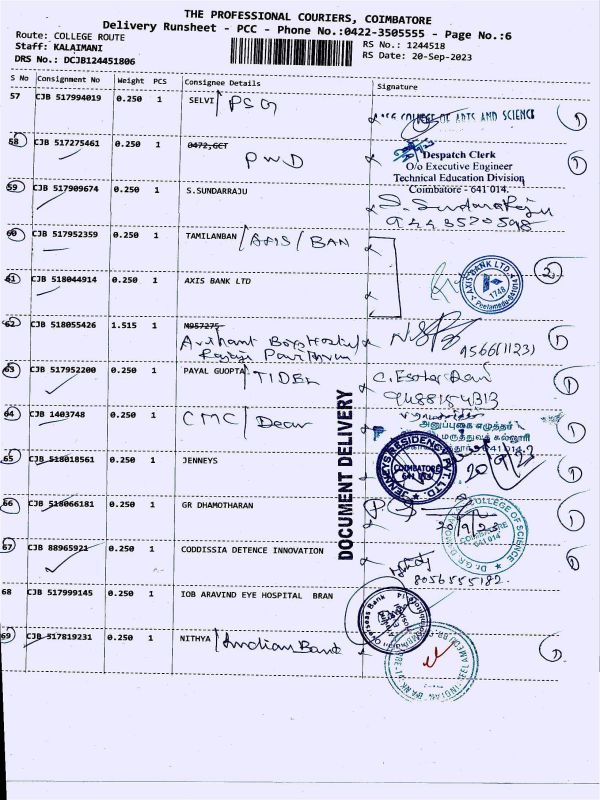 THE PROFESSIONAL COURIERS, COIMBATORE
Delivery Runsheet - PCC - Phone No.:0422-3505555 - Page No.:6
Route: COLLEGE ROUTE
Staff: KALAIMANI
DRS No.: DCJB124451806
RS No.: 1244518
RS Date: 20-Sep-2023
S No Consignment No Weight PCS Consignee Details Signature
57 CJB 517994019 0.250 1 SELVI / PSG
COLLEGE OF ARTS AND SCIENCE 1
58 CJB 517275461 0.250 1 0472,GCT
PWD
Despatch Clerk
O/o Executive Engineer
Technical Education Division
Coimbatore - 641 014.
1
59 CJB 517909674 0.250 1 S.SUNDARRAJU
S. SundaraRaju
9443520598
60 CJB 517952359 0.250 1 TAMILANBAN / AXIS / BAN
61 CJB 518044914 0.250 1 AXIS BANK LTD
AXIS BANK LTD
1748
Peelamedu-641014
2
62 CJB 518055426 1.515 1 M957275
Arihant Boys Hostel
9566111231
1
63 CJB 517952200 0.250 1 PAYAL GUOPTA / TIDEL
9488154313
1
64 CJB 1403748 0.250 1 CMC / Dean
அனுப்புகை எழுத்தர்
மருத்துவக் கல்லூரி
1
DOCUMENT DELIVERY
65 CJB 518018561 0.250 1 JENNEYS
JENNEYS RESIDENCY PVT. LTD.
COIMBATORE
641 014
1
66 CJB 518066181 0.250 1 GR DHAMOTHARAN
COLLEGE OF SCIENCE
COIMBATORE
641 014
1
67 CJB 88965921 0.250 1 CODDISSIA DETENCE INNOVATION
8056555182
1
68 CJB 517999145 0.250 1 IOB ARAVIND EYE HOSPITAL BRAN
Overseas Bank
69 CJB 517819231 0.250 1 NITHYA / Indian Bank
INDIAN BANK
1